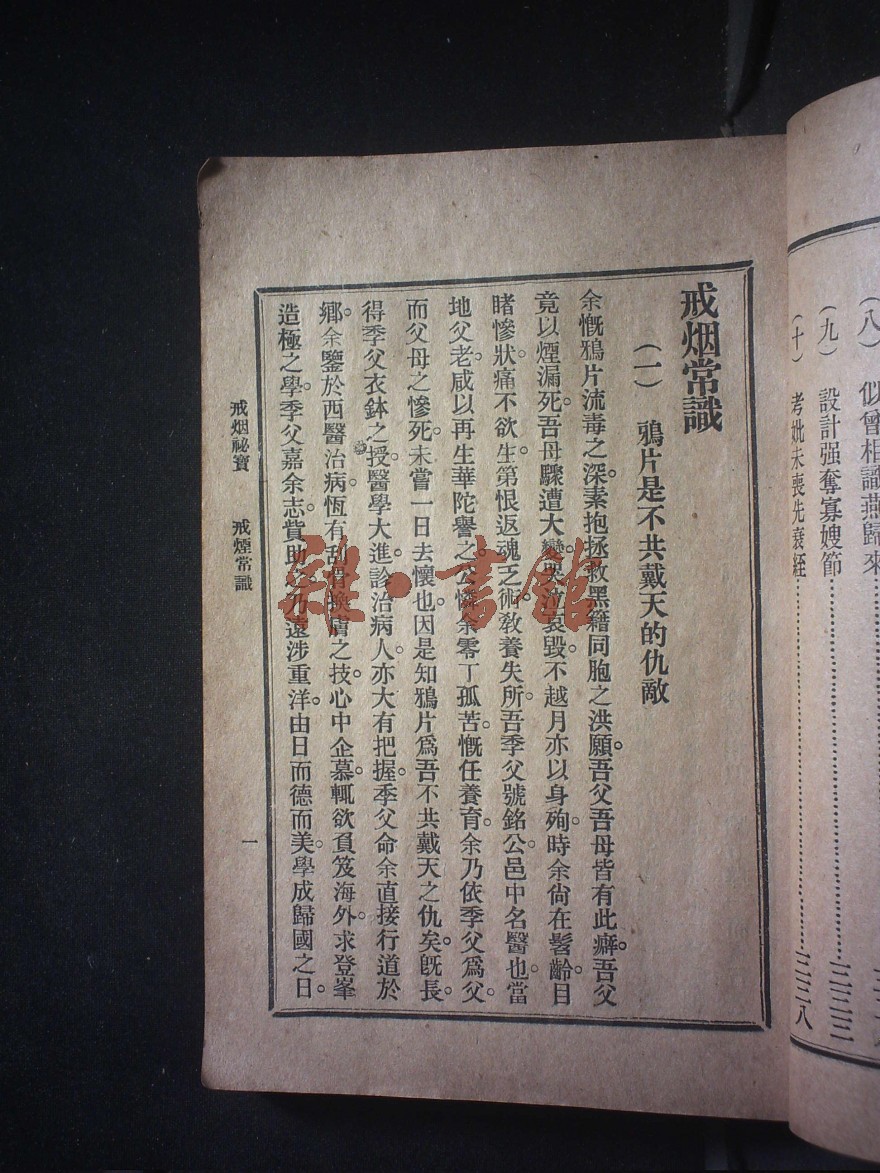 戒烟常識
（一）　鴉片是不共戴天的仇敵
余慨鴉片流毒之深。素抱拯救黑籍同胞之洪願。吾父吾母皆有此癖。吾父
竟以煙漏死。吾母驟遭大變。哭泣哀毀。不越月亦以身殉。時余尙在髫齡。目
睹慘狀。痛不欲生。第恨返魂乏術。敎養失所。吾季父號銘公。邑中名醫也。當
地父老。咸以再生華陀譽之。公憐余零丁孤苦。慨任養育。余乃依季父爲父。
而父母之慘死。未嘗一日去懷也。因是知鴉片爲吾不共戴天之仇矣。旣長。
得季父衣鉢之授。醫學大進。診治病人。亦大有把握。季父命余直接行道於
鄉。余鑒於西醫治病。恆有刮骨換膚之技。心中企慕。輒欲負笈海外。求登峯
造極之學。季父嘉余志。貲助之。乃遠涉重洋。由日而德而美。學成歸國之日。
戒烟祕寶　戒煙常識　一
雜·書館
（八）　似曾相識燕歸來
（九）　設計强奪寡嫂節………三三三
（十）　考妣未喪先衰絰………三三八